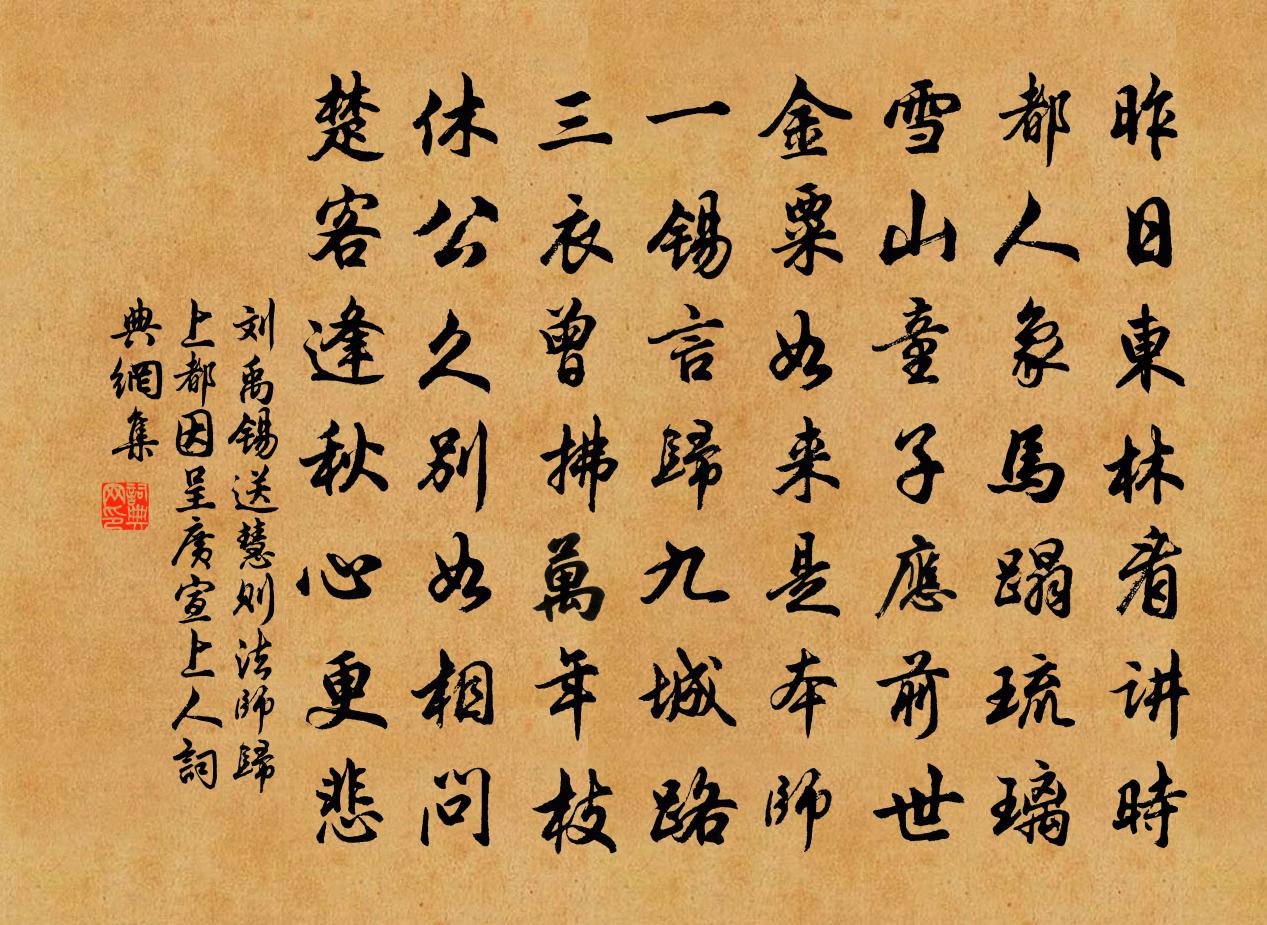 昨日東林看讲時
都人象馬蹋琉璃
雪山童子應前世
金粟如来是本師
一锡言歸九城路
三衣曾拂萬年枝
休公久别如相问
楚客逢秋心更悲
刘禹锡送慧则法師歸
上都因呈廣宣上人詞
典網集
詞典
网印